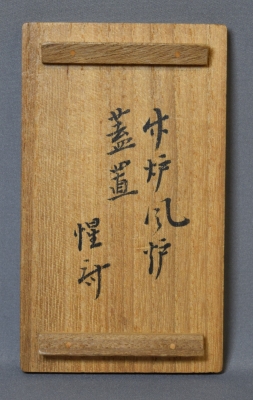 竹炉風炉
蓋置
惺斎